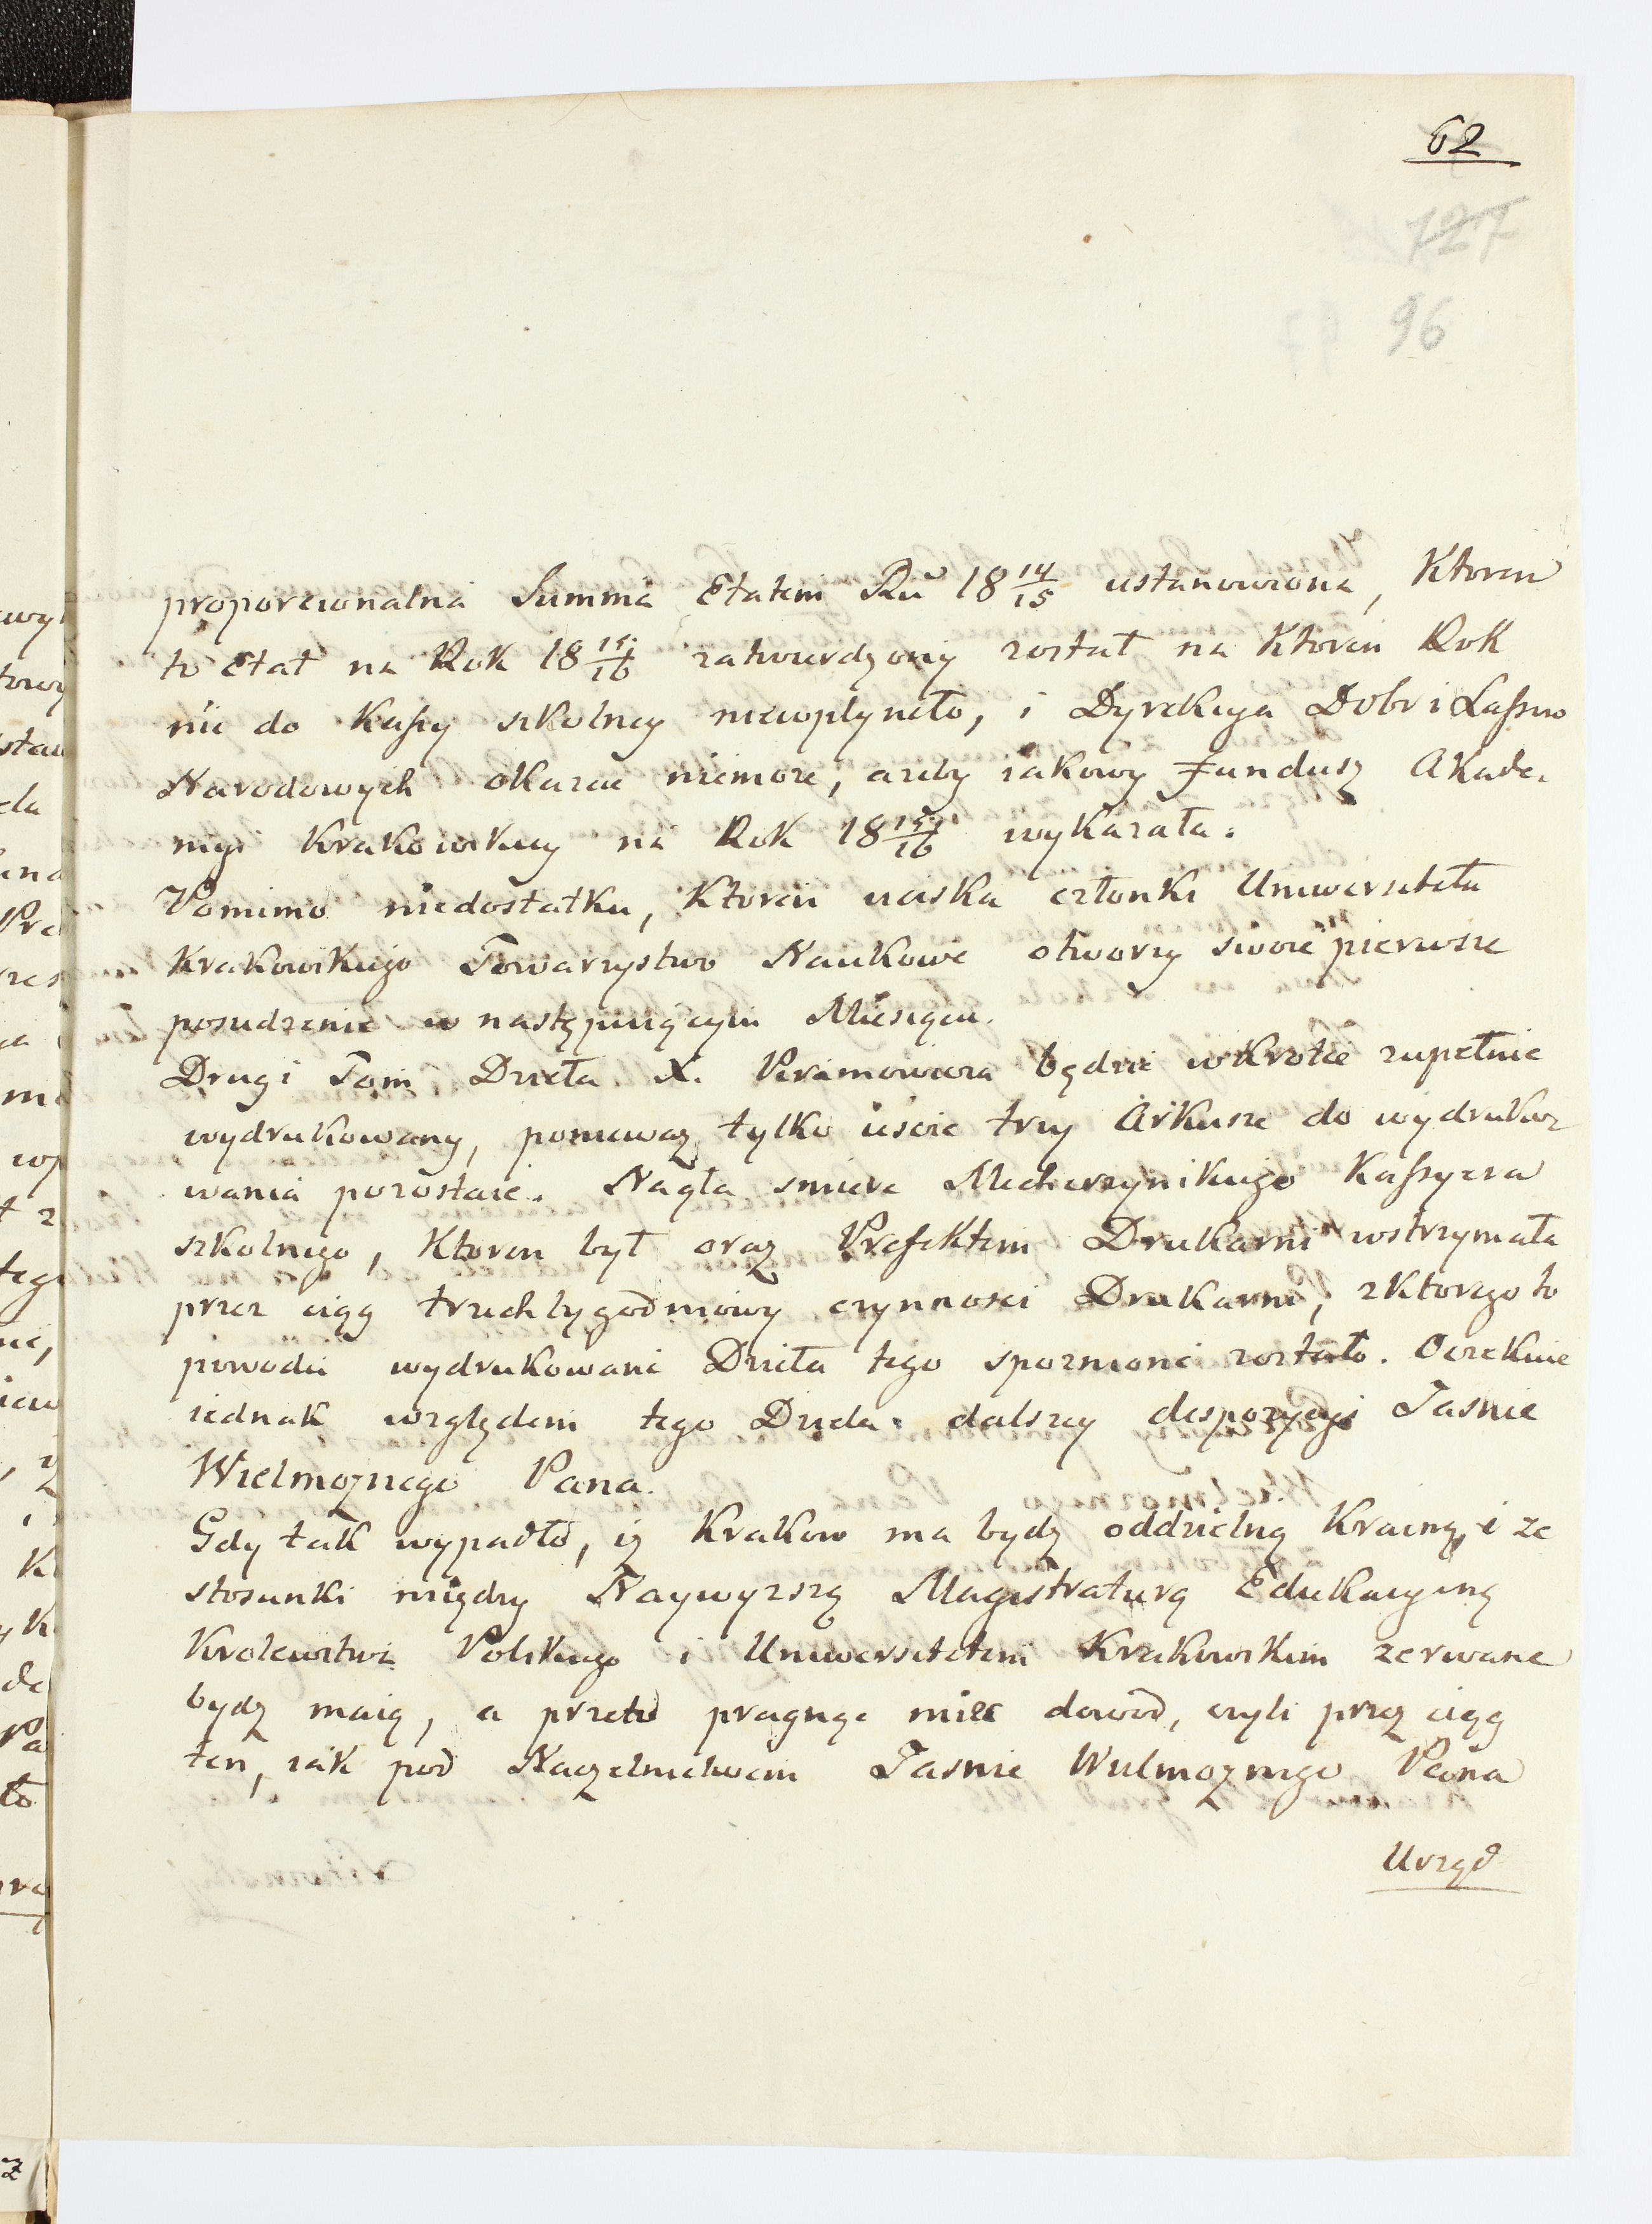 62
727
96
proporcionalna Summa Etatem Ru 18 14/15 ustanowiona, Ktoren
to Etat na Rok 18 15/16 zatwierdzony został na Ktoren Rok
nic do Kassy szkolney niewpłyneło, i Dyrekcya Dobr i Lassow
Narodowych okazac niemoze, azeby iakowy Fundusz Akade-
myi Krakowskiey na Rok 18 15/16 wykazała.
Pomimo niedostatku, Ktoren uciska członki Uniwersitetu
Krakowskiego Towarzystwo Naukowe otworzy swoie pierwsze
posiedzenie w następuiącym Miesiącu.
Drugi Tom Dzieła X. Piramowicza będzie wKrotce zupełnie
wydrukowany, poniewaz tylko iescze trzy Arkusze do wydruko-
wania pozostaie. Nagła smierc Mecherzynskiego Kassyera
szkolnego, Ktoren był oraz Prefektem Drukarni wstrzymała
przez ciąg trzechtygodniowy czynnosci Drukarni, zKtorego to
powodu wydrukowanie Dzieła tego spoznione zostało. Oczekuie
iednak względem tego Dzieła dalszey dyspozycyi Jasnie
Wielmoznego Pana.
Gdy tak wypadło, iz Krakow ma bydz oddzielną Krainą, i ze
stosunki między Naywyzszą Magistraturą Edukacyiną
Krolewstwa Polskiego i Uniwersitetem Krakowskim zerwane
bydz maią, a przeto pragnąc miec dowod, czyli przez ciąg
ten, iak pod Naczelnictwem Jasnie Wielmoznego Pana
Urząd